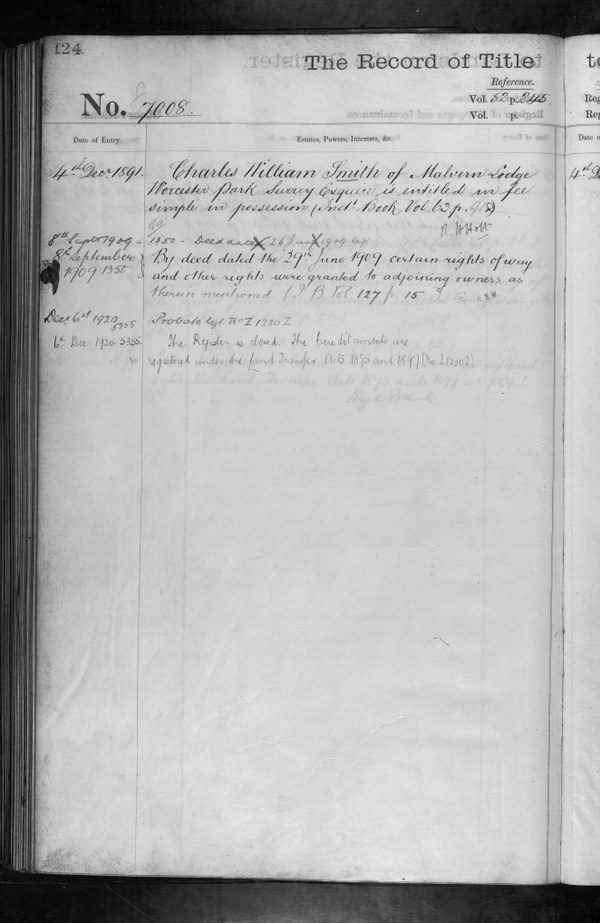 124
The Record of Title
Reference.
No. 7008.
Vol. 52 p. 245
Vol. p.
Date of Entry.
Estates, Powers, Interests, &c.
4th Decr 1891.
Charles William Smith of Malvern Lodge
Worcester Park Surrey Esquire is entitled in fee
simple in possession (Inst. Book Vol. 63 p.
R. W. Holt
8th Septr 1909 -
1350 - Deed dated 1909
8th September
1909 1350
By deed dated the 29th June 1909 certain rights of way
and other rights were granted to adjoining owners as
therein mentioned (I. B. Vol. 127 p. 15
Dec. 6th 1920
5355
Probate
6th Dec. 1920 5355.
The Register is closed. The hereditaments are
registered under the Land Transfer Acts 1875 and 1897
to
Reg
Reg
Date o
4th D